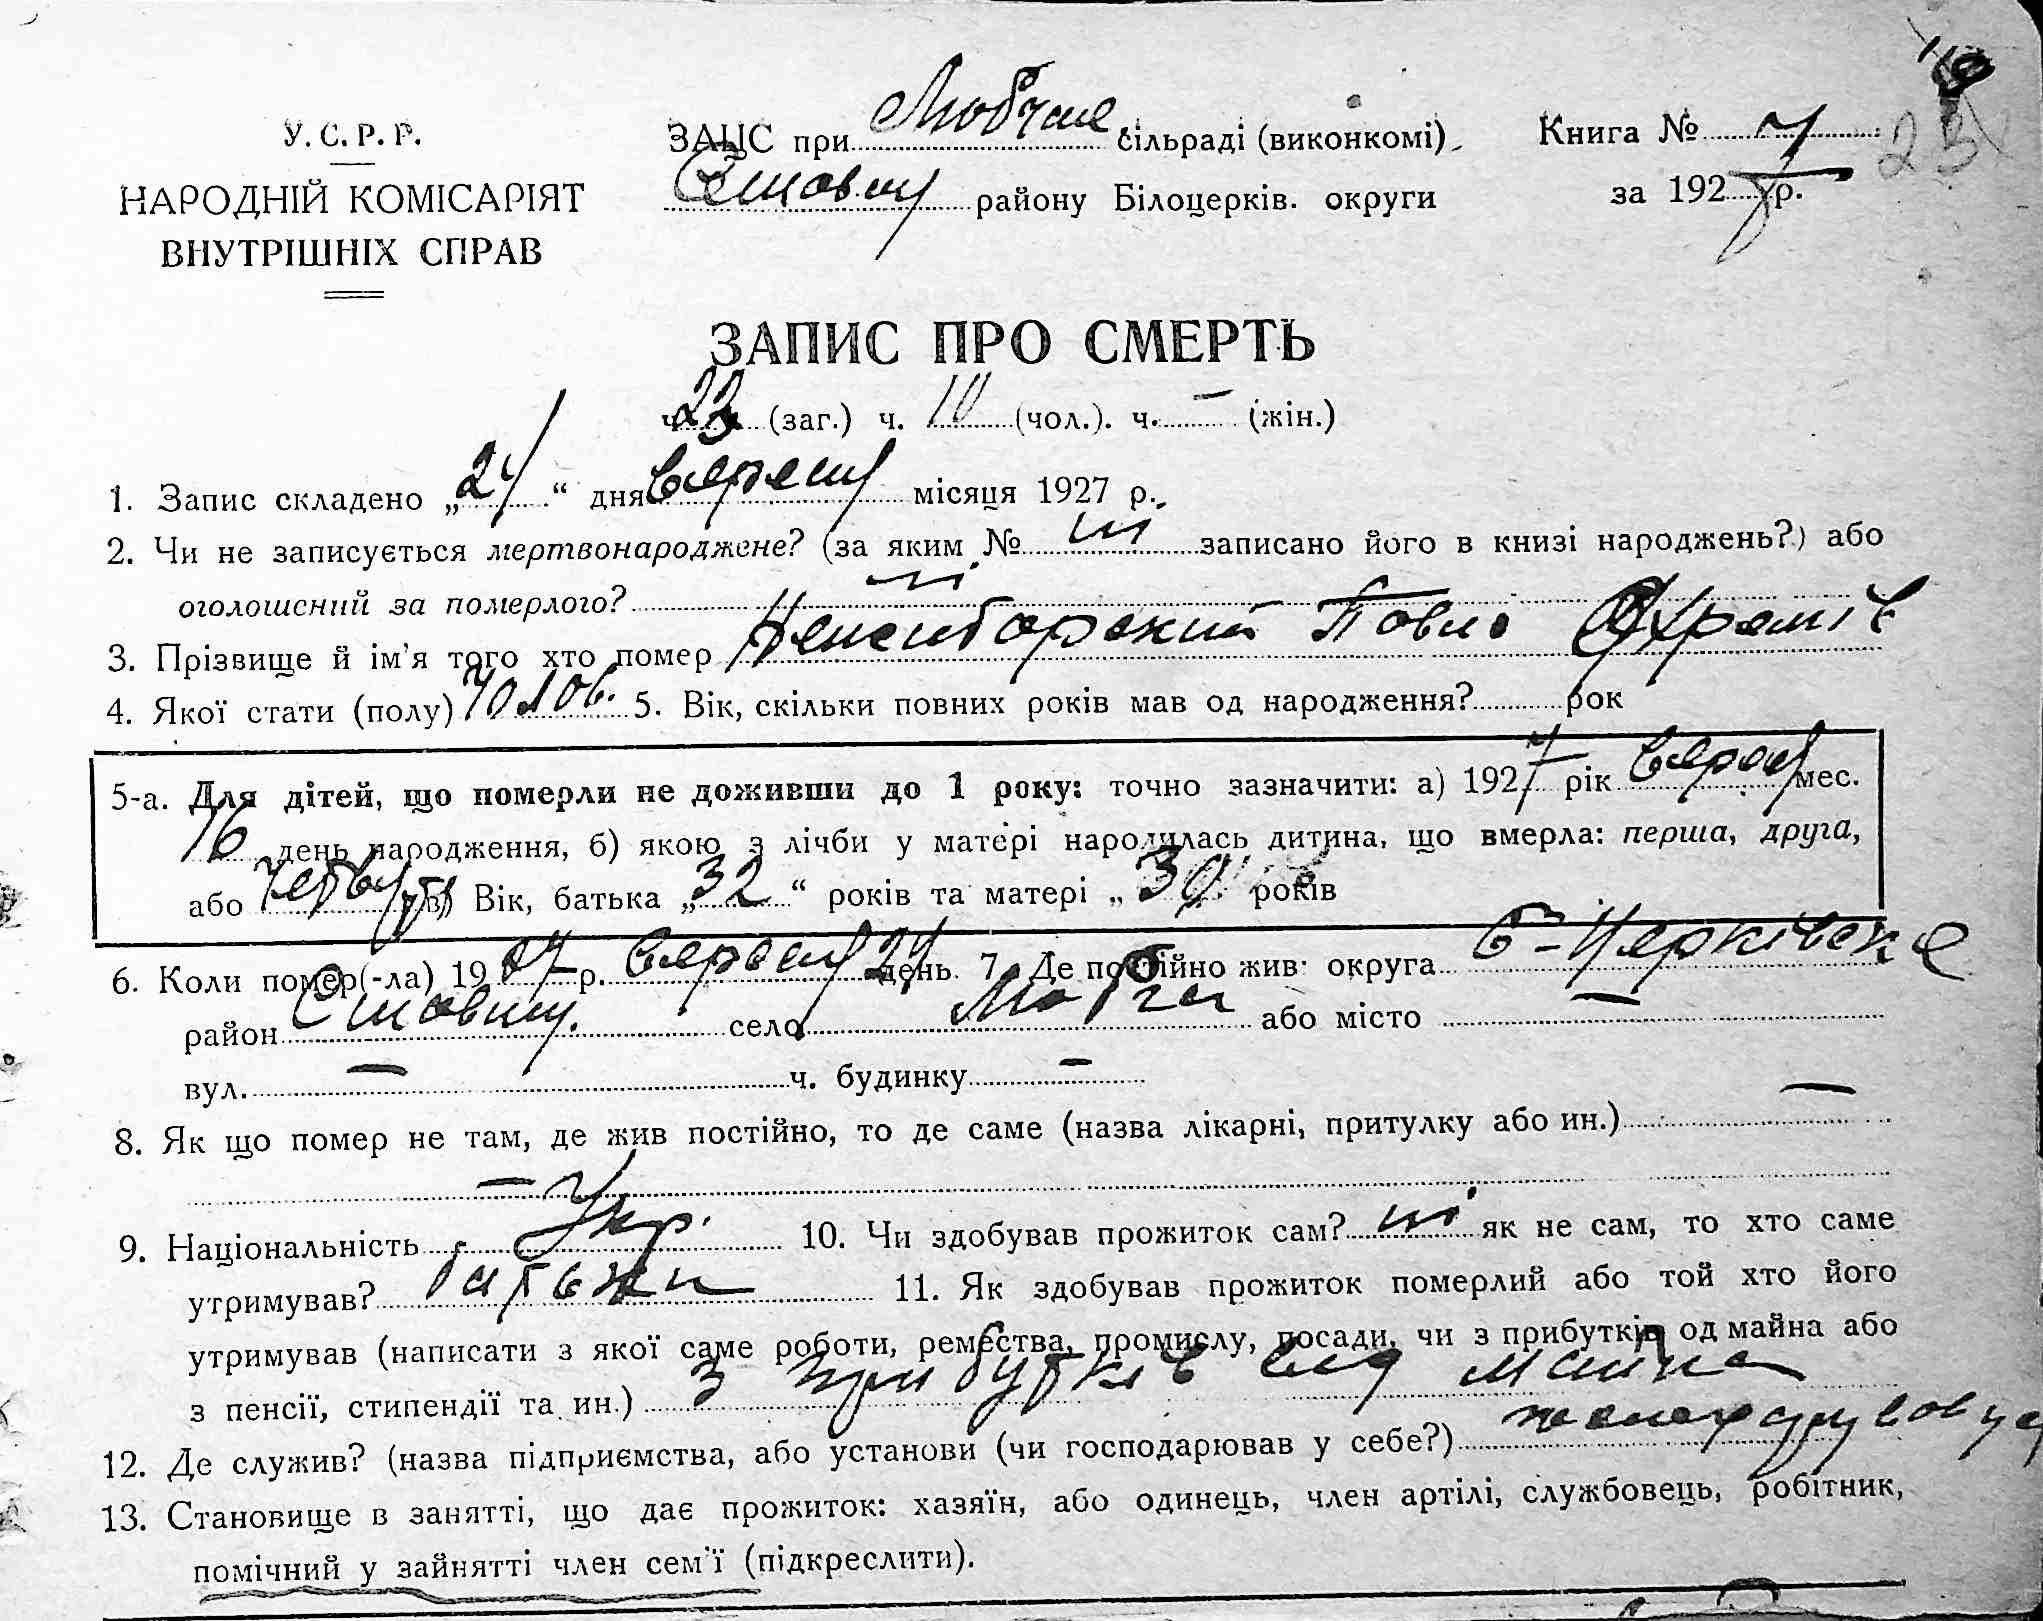 У. С. Р. Р.
НАРОДНІЙ КОМІСАРІЯТ
ВНУТРІШНІХ СПРАВ
ЗАЦС при сільраді (виконкомі)
району Білоцерків. округи
Книга № 7
за 1927 р.
23
ЗАПИС ПРО СМЕРТЬ
ч. 23 (заг.) ч. 10 (чол.). ч. — (жін.)
1. Запис складено „24“ дня вересня місяця 1927 р.
2. Чи не записується мертвонароджене? (за яким № ні записано його в книзі народжень?) або
оголошений за померлого? ні
3. Прізвище й ім'я того хто помер Павло
4. Якої стати (полу) чолов. 5. Вік, скільки повних років мав од народження? рок
5-а. Для дітей, що померли не доживши до 1 року: точно зазначити: а) 1927 рік вересня мес.
16 день народження, б) якою з лічби у матері народилась дитина, що вмерла: перша, друга,
або четверта в) Вік, батька „32“ років та матері „ років
6. Коли помер(-ла) 1927 р. вересня 24 день 7. Де постійно жив: округа Б-Церківска
район село або місто —
вул. — ч. будинку —
8. Як що помер не там, де жив постійно, то де саме (назва лікарні, притулку або ин.) —
—
9. Національність Укр. 10. Чи здобував прожиток сам? ні як не сам, то хто саме
утримував? батьки 11. Як здобував прожиток померлий або той хто його
утримував (написати з якої саме роботи, ремества, промислу, посади, чи з прибутків од майна або
з пенсії, стипендії та ин.) з прибутків від майна
12. Де служив? (назва підприємства, або установи (чи господарював у себе?)
13. Становище в занятті, що дає прожиток: хазяїн, або одинець, член артілі, службовець, робітник,
помічний у зайнятті член сем'ї (підкреслити).